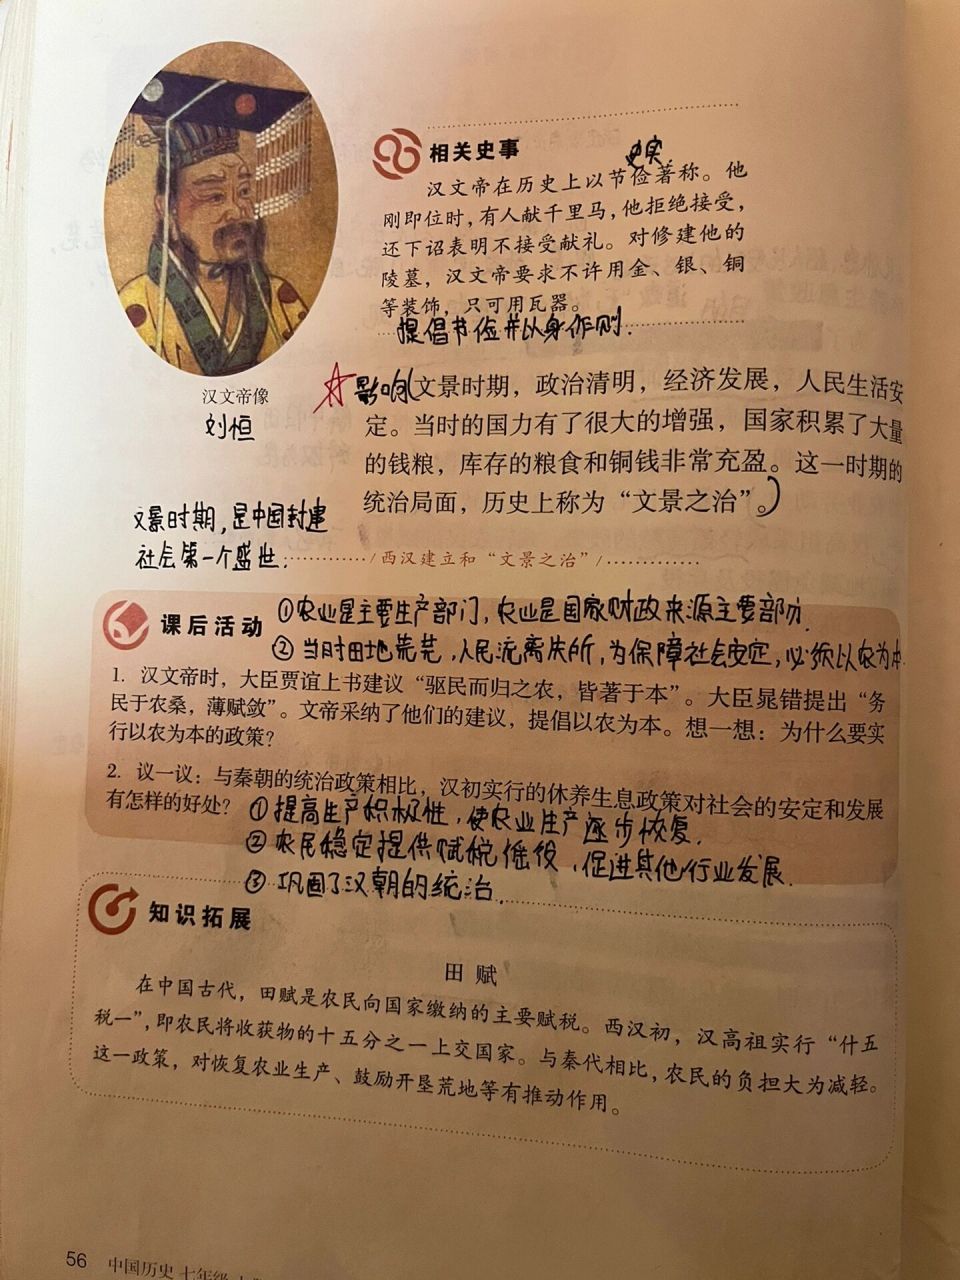 相关史事
史实
汉文帝在历史上以节俭著称。他
刚即位时，有人献千里马，他拒绝接受，
还下诏表明不接受献礼。对修建他的
陵墓，汉文帝要求不许用金、银、铜
等装饰，只可用瓦器。
提倡节俭并以身作则.
汉文帝像
刘恒
影响(文景时期，政治清明，经济发展，人民生活安
定。当时的国力有了很大的增强，国家积累了大量
的钱粮，库存的粮食和铜钱非常充盈。这一时期的
统治局面，历史上称为“文景之治”。)
文景时期，是中国封建
社会第一个盛世.
/西汉建立和“文景之治”/
课后活动
①农业是主要生产部门，农业是国家财政来源主要部份.
②当时田地荒芜，人民流离失所，为保障社会安定，必须以农为本.
1. 汉文帝时，大臣贾谊上书建议“驱民而归之农，皆著于本”。大臣晁错提出“务
民于农桑，薄赋敛”。文帝采纳了他们的建议，提倡以农为本。想一想：为什么要实
行以农为本的政策？
2. 议一议：与秦朝的统治政策相比，汉初实行的休养生息政策对社会的安定和发展
有怎样的好处？
①提高生产积极性，使农业生产逐步恢复.
②农民稳定提供赋税徭役，促进其他行业发展.
③巩固了汉朝的统治.
知识拓展
田赋
在中国古代，田赋是农民向国家缴纳的主要赋税。西汉初，汉高祖实行“什五
税一”，即农民将收获物的十五分之一上交国家。与秦代相比，农民的负担大为减轻。
这一政策，对恢复农业生产、鼓励开垦荒地等有推动作用。
56 中国历史 七年级